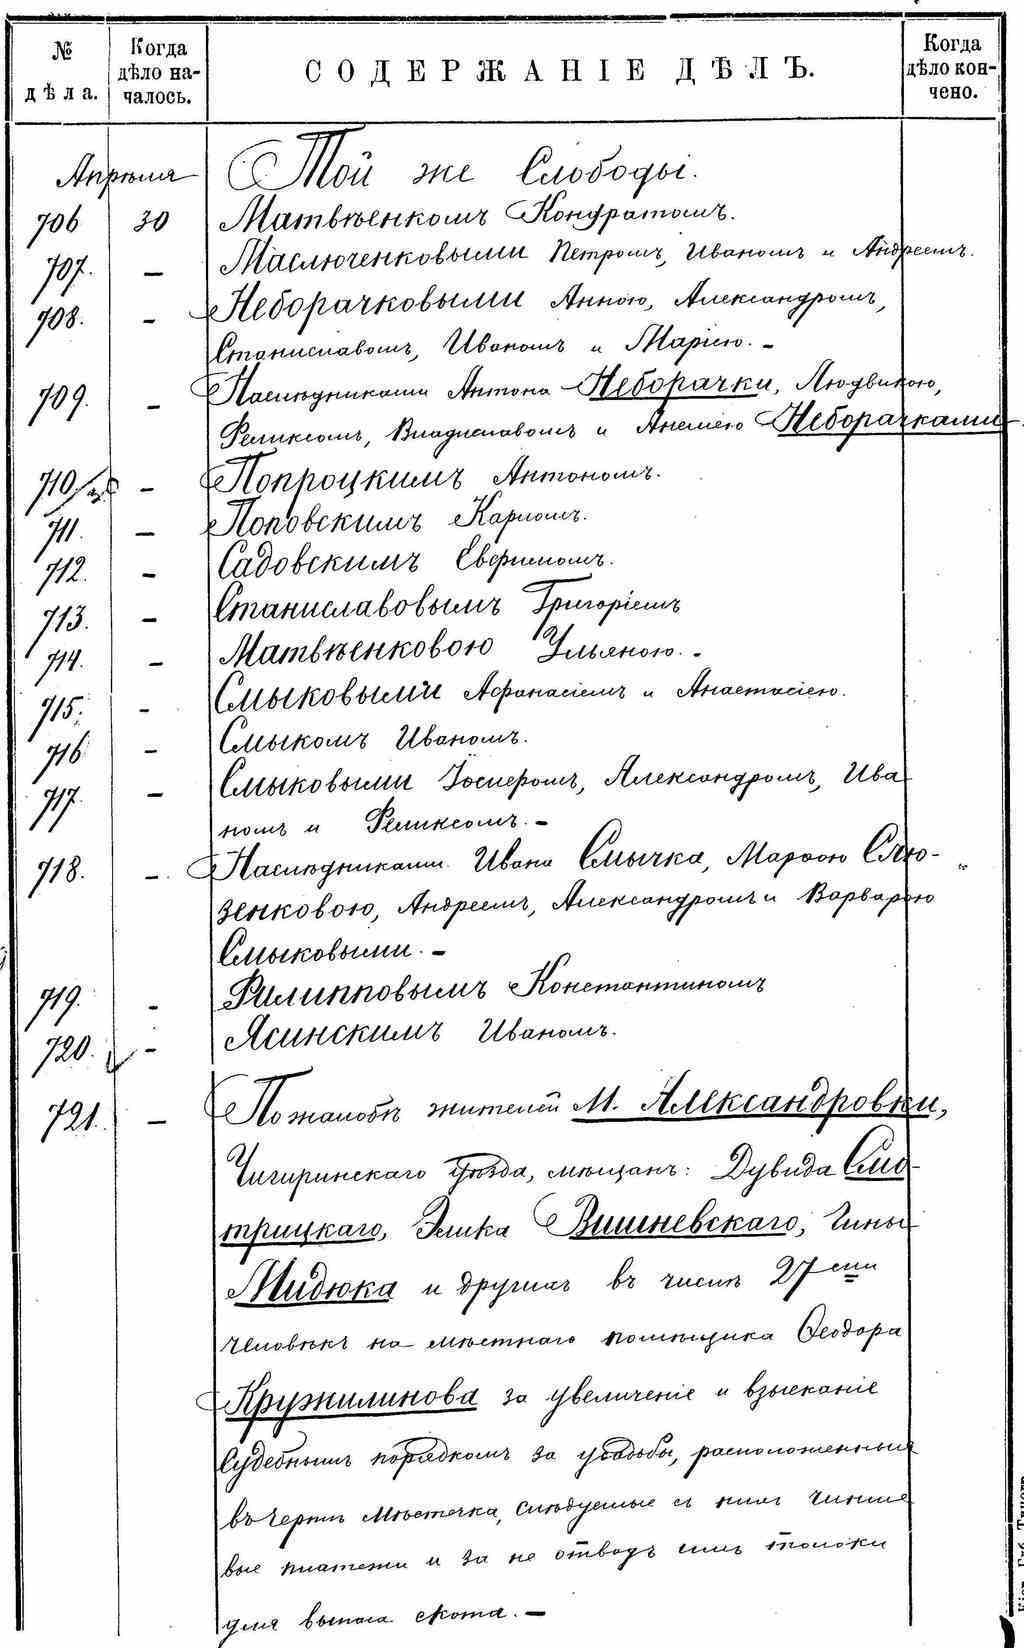 № дѣла.
Когда дѣло началось.
СОДЕРЖАНІЕ ДѢЛЪ.
Когда дѣло кончено.
Апрѣля Той же Слободы.
706 30 Матвѣенкомъ Кондратомъ.
707. — Маслюченковыми Петромъ, Иваномъ и Андреемъ.
708. — Неборачковыми Анною, Александромъ,
Станиславомъ, Иваномъ и Маріею. —
709. — Наслѣдниками Антона Неборачки, Людвикою,
Феликсомъ, Владиславомъ и Анелею Неборачками
710 — Попроцкимъ Антономъ.
711. — Поповскимъ Карломъ.
712. — Садовскимъ Евфимомъ.
713. — Станиславовымъ Григоріемъ
714. — Матвѣенковою Ульяною. —
715. — Смыковыми Афанасіемъ и Анастасіею.
716 — Смыкомъ Иваномъ.
717. — Смыковыми Іосиферомъ, Александромъ, Ива
номъ и Феликсомъ. —
718. — Наслѣдниками Ивана Смычка, Марѳою Слю-
зенковою, Андреемъ, Александромъ и Варварою
Смыковыми. —
719. — Филипповымъ Константиномъ
720. — Ясинскимъ Иваномъ.
721. — По жалобѣ жителей М. Александровки,
Чигиринскаго уѣзда, мѣщанъ: Дувида Смо-
трицкаго, Элика Вишневскаго, Чины
Мидюка и другихъ въ числѣ 27ми
человѣкъ на мѣстнаго помѣщика Ѳеодора
Кружилинова за увеличеніе и взысканіе
судебнымъ порядкомъ за усадьбы, расположенныя
въ чертѣ мѣстечка, слѣдуемые съ нихъ чинше
вые платежи и за не отводъ имъ толоки
для выпаса скота. —